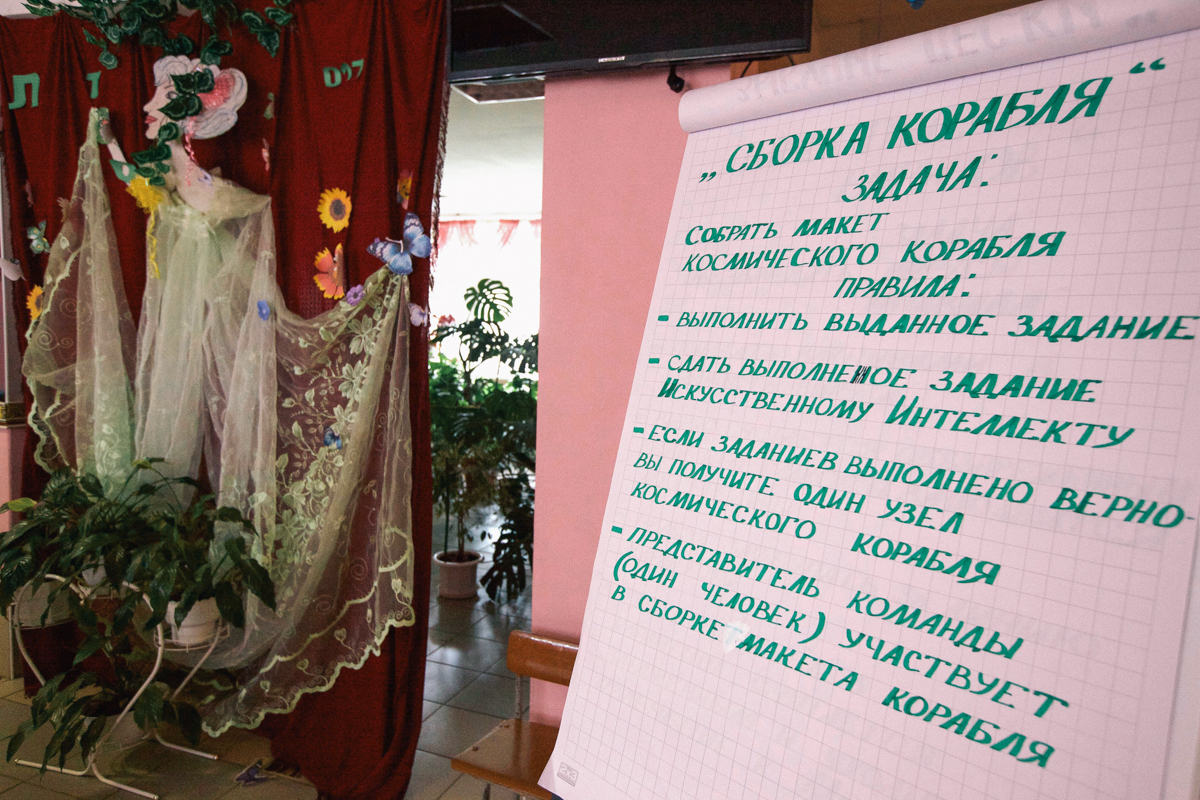 „СБОРКА КОРАБЛЯ“
ЗАДАЧА:
СОБРАТЬ МАКЕТ
КОСМИЧЕСКОГО КОРАБЛЯ
ПРАВИЛА:
- ВЫПОЛНИТЬ ВЫДАННОЕ ЗАДАНИЕ
- СДАТЬ ВЫПОЛНЕНОЕ ЗАДАНИЕ
ИСКУССТВЕННОМУ ИНТЕЛЛЕКТУ
- ЕСЛИ ЗАДАНИЕВ ВЫПОЛНЕНО ВЕРНО-
ВЫ ПОЛУЧИТЕ ОДИН УЗЕЛ
КОСМИЧЕСКОГО КОРАБЛЯ
- ПРЕДСТАВИТЕЛЬ КОМАНДЫ
(ОДИН ЧЕЛОВЕК) УЧАСТВУЕТ
В СБОРКЕ МАКЕТА КОРАБЛЯ